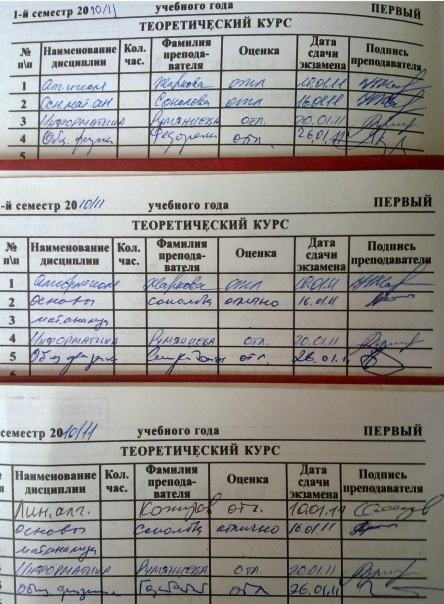 1-й семестр 2010/11 учебного года ПЕРВЫЙ
ТЕОРЕТИЧЕСКИЙ КУРС
№ п\п Наименование дисциплин Кол. час. Фамилия препода-вателя Оценка Дата сдачи экзамена Подпись преподавателя
1 Жаркова отл 10.01.11
2 Осн матан Соколова отл 16.01.11
3 Информатика Румянцева отл. 20.01.11
4 Общ. физика отл. 26.01.11
5
-й семестр 2010/11 учебного года ПЕРВЫЙ
ТЕОРЕТИЧЕСКИЙ КУРС
№ п\п Наименование дисциплин Кол. час. Фамилия препода-вателя Оценка Дата сдачи экзамена Подпись преподавателя
1 Жаркова отл 10.01.11
2 Основы Соколова отлично 16.01.11
3 матанализа
4 Информатика Румянцева отл. 20.01.11
5 Общ физика отл. 26.01.11
семестр 2010/11 учебного года ПЕРВЫЙ
ТЕОРЕТИЧЕСКИЙ КУРС
Наименование дисциплин Кол. час. Фамилия препода-вателя Оценка Дата сдачи экзамена Подпись преподавателя
Лин.алг. отл. 10.01.11
Основы Соколова отлично 16.01.11
матанализа
Информатика Румянцева отл. 20.01.11
Общ физика отл 26.01.11